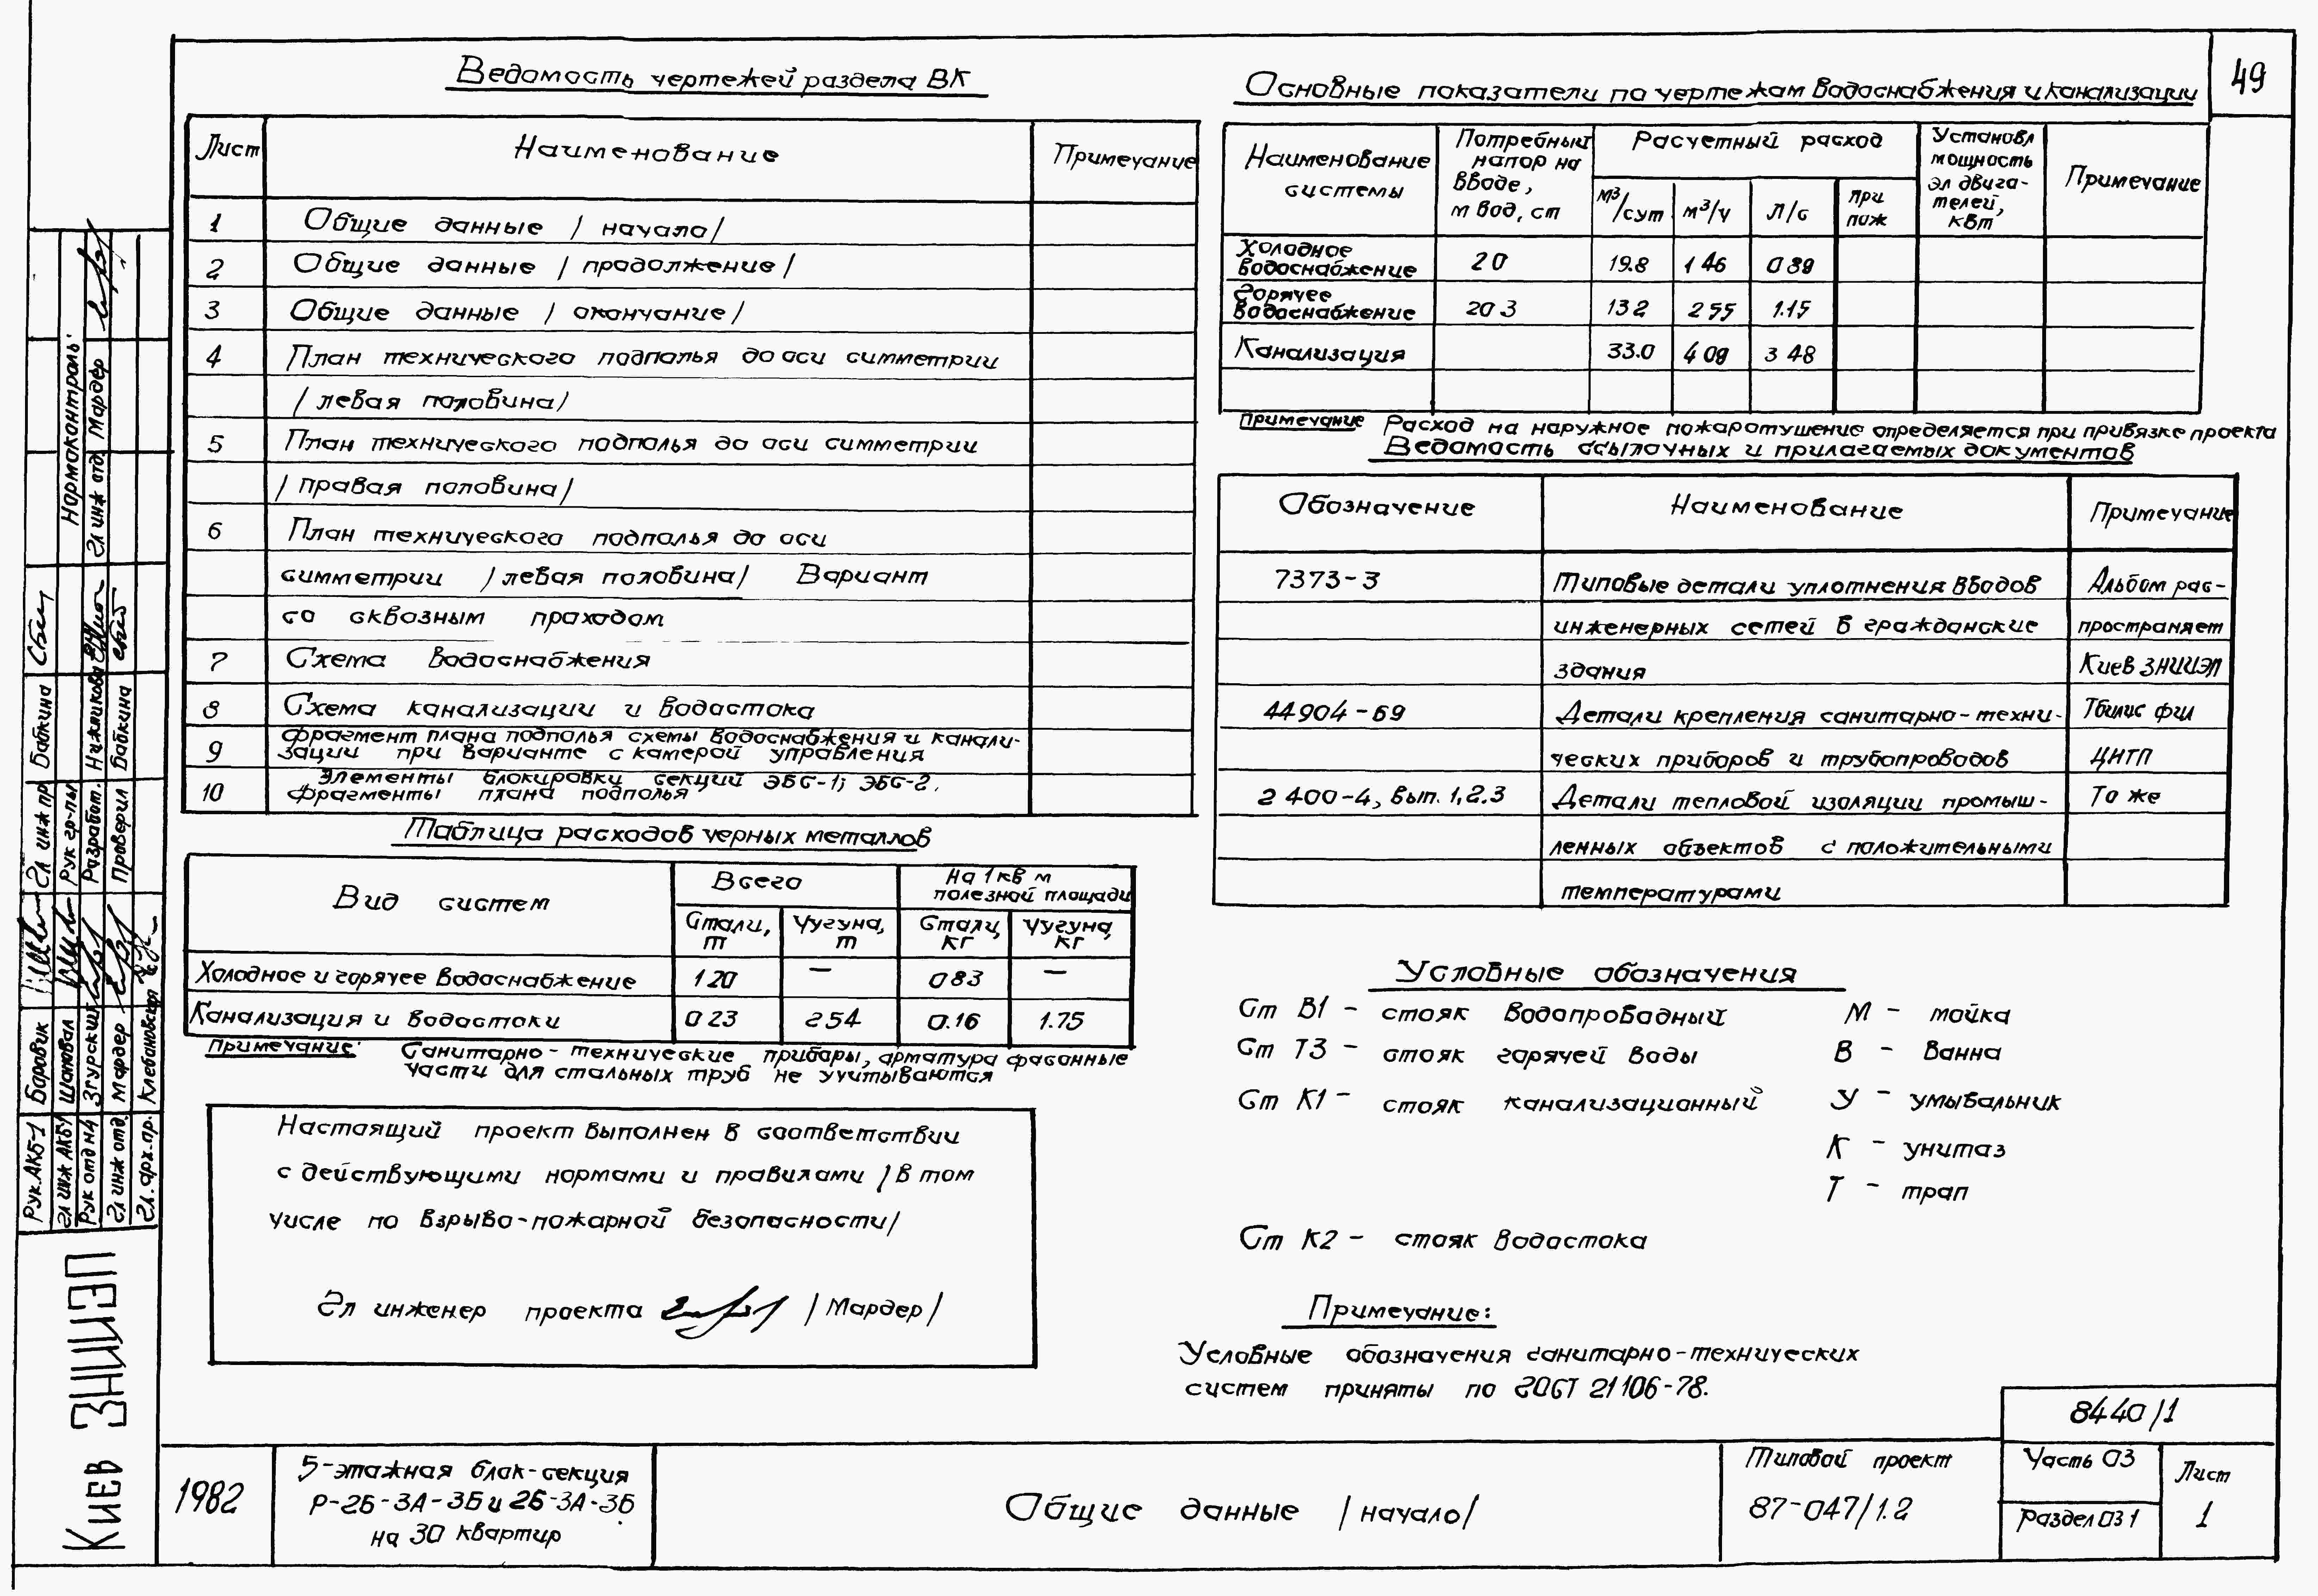 49
Ведомость чертежей раздела ВК
Лист
Наименование
Примечание
1
Общие данные /начало/
2
Общие данные /продолжение/
3
Общие данные /окончание/
4
План технического подполья до оси симметрии
/левая половина/
5
План технического подполья до оси симметрии
/правая половина/
6
План технического подполья до оси
симметрии /левая половина/ Вариант
со сквозным проходом
7
Схема водоснабжения
8
Схема канализации и водостока
9
Фрагмент плана подполья схемы водоснабжения и канали-
зации при варианте с камерой управления
10
Элементы блокировки секций ЭБС-1; ЭБС-2.
Фрагменты плана подполья
Таблица расходов черных металлов
Вид систем
Всего
На 1 кв м
полезной площади
Стали,
т
Чугуна,
т
Стали,
кг
Чугуна,
кг
Холодное и горячее водоснабжение
1 20
—
0 83
—
Канализация и водостоки
0 23
2 54
0.16
1.75
Примечание: Санитарно-технические приборы, арматура фасонные
части для стальных труб не учитываются
Настоящий проект выполнен в соответствии
с действующими нормами и правилами /в том
числе по взрыво-пожарной безопасности/
Гл инженер проекта /Мардер/
Основные показатели по чертежам водоснабжения и канализации
Наименование
системы
Потребный
напор на
вводе,
м вод, ст
Расчетный расход
м³/сут
м³/ч
л/с
при
пож
Установл
мощность
эл двига-
телей,
квт
Примечание
Холодное
водоснабжение
20
19.8
1 46
0 89
Горячее
водоснабжение
20 3
13 2
2 55
1.15
Канализация
33.0
4 09
3 48
Примечание Расход на наружное пожаротушение определяется при привязке проекта
Ведомость ссылочных и прилагаемых документов
Обозначение
Наименование
Примечание
7373-3
Типовые детали уплотнения вводов
Альбом рас-
инженерных сетей в гражданские
пространяет
здания
Киев ЗНИИЭП
44904-69
Детали крепления санитарно-техни-
Тбилис фил
ческих приборов и трубопроводов
ЦИТП
2 400-4, вып. 1,2.3
Детали тепловой изоляции промыш-
То же
ленных объектов с положительными
температурами
Условные обозначения
Ст В1 - стояк водопроводный
М - мойка
Ст Т3 - стояк горячей воды
В - ванна
Ст К1 - стояк канализационный
У - умывальник
К - унитаз
Т - трап
Ст К2 - стояк водостока
Примечание:
Условные обозначения санитарно-технических
систем приняты по ГОСТ 21106-78.
8440/1
1982
5-этажная блок-секция
Р-2Б-3А-3Б и 2Б-3А-3Б
на 30 квартир
Общие данные /начало/
Типовой проект
87-047/1.2
Часть 03
Раздел 03 1
Лист
1
Киев ЗНИИЭП
Рук. АКБ-1 Боровик
Гл инж АКБ1 Шаповал
Рук отд н4 Згурский
Гл инж отд. Мардер
Гл. арх. пр. Клебановская
Гл инж пр Бабкина
Рук гр-пы
Разработ. Нижникова
Проверил Бабкина
Нормоконтроль
Гл инж отд. Мардер